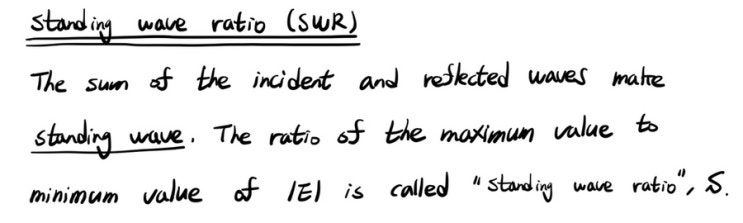 standing wave ratio (SWR)
The sum of the incident and reflected waves make
standing wave. The ratio of the maximum value to
minimum value of |E| is called "standing wave ratio", S.